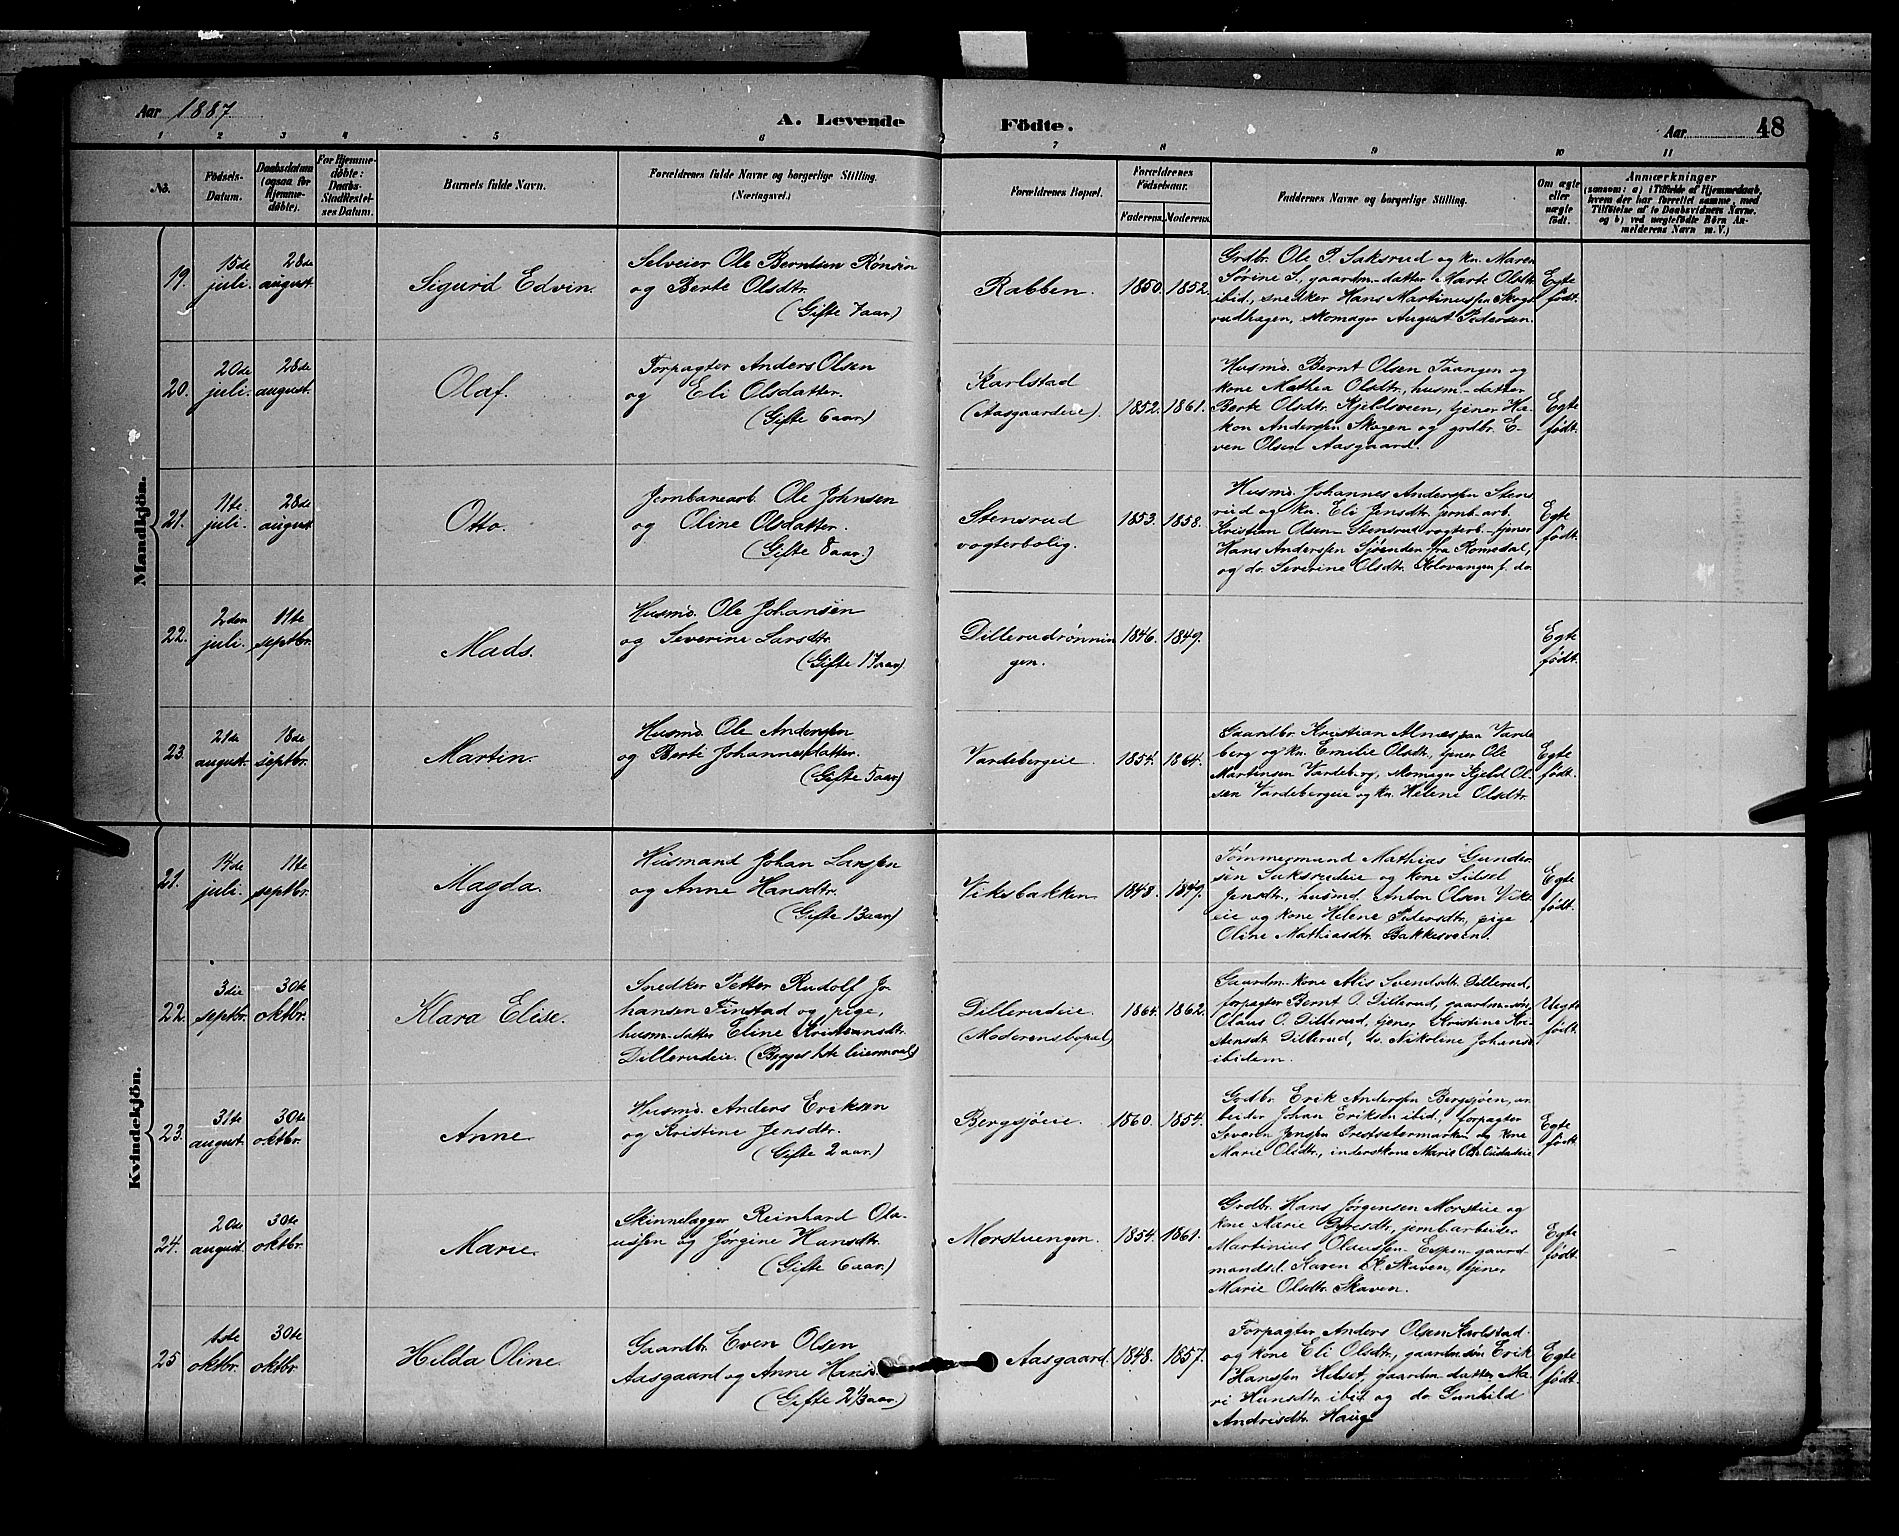 Aar 1887.
A. Levende
Födte.
Aar
48
1 2 3 4 5 6 7 8 9 10 11
No.
Födsels-
Datum.
Daabsdatum
(ogsaa for
Hjemme-
döbte).
For Hjemme-
döbte:
Daabs-
Stadfæstel-
ses Datum.
Barnets fulde Navn.
Forældrenes fulde Navne og borgerlige Stilling.
(Næringsvei.)
Forældrenes Bopæl.
Forældrenes
Födselsaar.
Faderens. Moderens.
Faddernes Navne og borgerlige Stilling.
Om ægte
eller
uægte
födt.
Anmærkninger
(saasom: a) i Tilfælde af Hjemmedaab,
hvem der har forrettet samme, med
Tilföielse af to Daabsvidners Navne.
og b) ved uægtefödte Börn An-
melderens Navn m. V.)
Mandkjön.
19.
15de
juli.
28de
august.
Sigurd Edvin.
Selveier Ole Berntsen Rønsen
og Berte Olsdtr.
(Gifte 7 aar)
Rabben.
1850. 1852.
Grdbr. Ole P. Saksrud og kn. Maren
Sørine S., gaardm-datter Mart. Olsdtr.
ibid, snedker Hans Martinussen Skogs
rudhagen, Momager August Pedersen.
Egte
født.
20.
20de
juli.
28de
august.
Olaf.
Forpagter Anders Olsen
og Eli Olsdatter.
(Gifte 6 aar.)
Karlstad
(Aasgaardeie)
1852. 1861.
Husmd. Bernt Olsen Taangen og
kone Mathea Olsdtr, husm-datter
Berte Olsdtr. Kjeldsveen, tjener Ha-
kon Anderssen Skogen og grdbr. E-
ven Olsen Aasgaard.
Egte
født.
21.
11te
juli.
28de
august
Otto.
Jernbanearb. Ole Johnsen
og Oline Olsdatter.
(Gifte 8 aar.)
Stensrud
vogterbolig.
1853. 1858.
Husmd. Johannes Anderssen Stens
rud og kn. Eli Jensdtr. jernb.arb.
Kristian Olsen Stensrud vogterb. tjener
Hans Anderssen Sjøenden fra Romedal,
og do. Severine Olsdtr. Kolovangen f. do.
Egte
født.
22.
2den
juli.
11te
septbr.
Mads.
Husmd. Ole Johansen
og Severine Larsdtr.
(Gifte 17 aar)
Dillerudrønnin
gen.
1846. 1849.
Egte
født.
23.
21de
august.
18de
septbr.
Martin.
Husmd. Ole Anderssen
og Berte Johannesdatter.
(Gifte 5 aar)
Vardebergeie.
1854. 1864.
Gaardbr. Kristian Alnæs paa Varde
berg og kn. Emilie Olsdtr, tjener Ole
Martinsen Vardeberg, Momager Kjeld Ol-
sen Vardebergeie og kn. Helene Olsdtr.
Egte
født.
Kvindekjön.
21.
14de
juli.
11te
septbr.
Magda.
Husmand Johan Larssen
og Anne Hansdtr.
(Gifte 13 aar)
Viksbakken
1848. 1849.
Tømmermand Mathias Gunder
sen Saksrudeie og kone Sidsel
Jensdtr., husmd. Anton Olsen Viks
eie og kone Helene Pedersdtr, pige
Oline Mathiasdtr. Bakkesveen.
Egte
født.
22.
3die
septbr.
30te
oktbr.
Klara Elise.
Snedker Petter Rudolf Jo-
hansen Finstad og pige,
husm-datter Eline Kristiansdtr.
Dillerudeie. (Begges 1ste leiermaal)
Dillerudeie.
(Moderens bopæl)
1864. 1862.
Gaardm-kone Alis Svendsdtr. Dillerud,
forpagter Bernt O. Dillerud, gaardm-søn
Olaus O. Dillerud, tjener Kristine Kri-
stensdt. Dillerud, do. Nikoline Johans
ibidem.
Uegte
født.
23.
31te
august.
30te
oktbr.
Anne.
Husmd. Anders Eriksen
og Kristine Jensdtr.
(Gifte 2 aar.)
Bergsjøeie.
1860. 1854.
Grdbr. Erik Anderssen Bergsjøen, ar-
beider Johan Eriksen ibid, forpagter
Severin Jenssen Prestsætermarken og kone
Marie Olsdtr., inderstkone Marie
Egte
født
24.
20de
august.
30te
oktbr.
Marie.
Skinnelægger Reinhard Ola-
ussen og Jørgine Hansdtr.
(Gifte 6 aar.)
Morstuengen.
1854. 1861.
Grdbr. Hans Jørgensen Morstueie og
kone Marie Pedersdtr., jernb.arbeider
Martinius Olaussen Espen gaard-
mandsd. Karen K. Skaven, tjener
Marie Olsdtr. Skaven.
Egte
født.
25
1ste
oktbr.
30te
oktbr.
Helda Oline.
Gaardbr. Even Olsen
Aasgaard og Anne Hans
(Gifte 2 1/3 aar.)
Aasgaard.
1848. 1857.
Forpagter Anders Olsen Karlstad
og kone Eli Olsdtr, gaardm.søn Erik
Hanssen Helset, gaardm-datter Ma-
ri Hansdtr ibid og do Gunhild
Andrisdtr. Haug.
Egte
født.